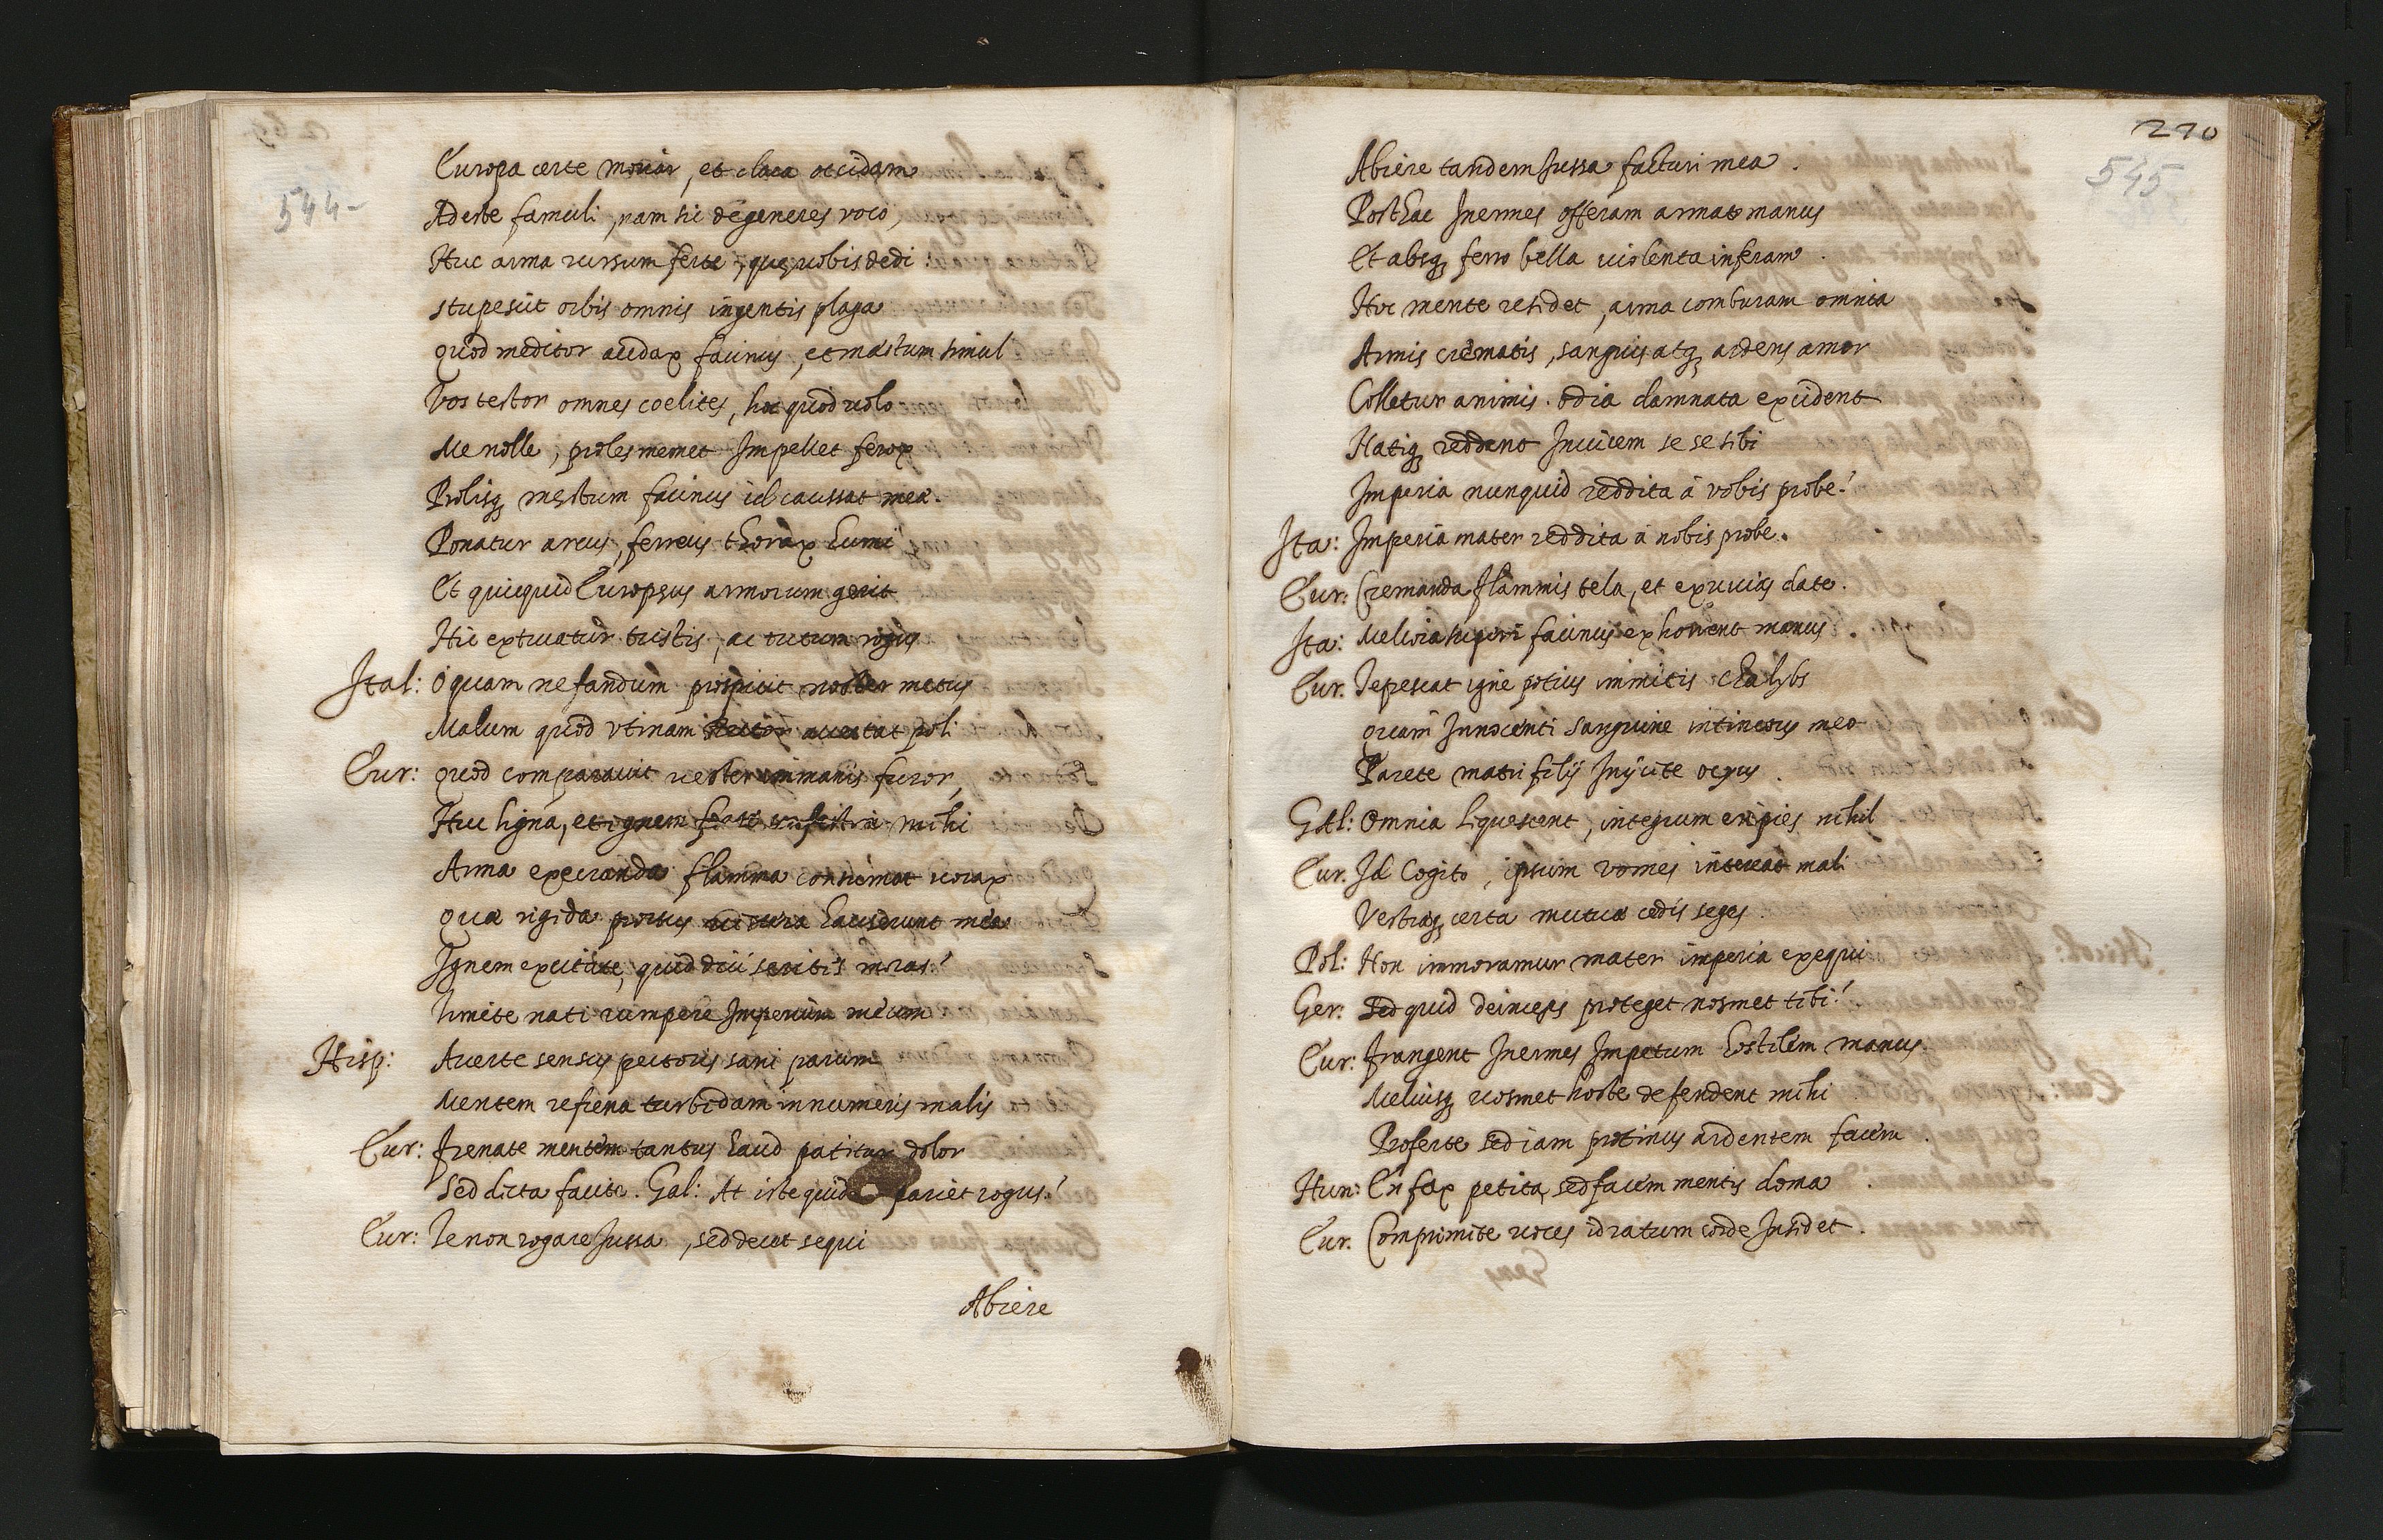 544-
Europa certe moriar, et clara occidam
Adeste famuli, nam sic degeneres voco,
Huc arma rursum ferte, quę vobis dedi.
stupescit orbis omnis ingentis plaga
quod meditor audax facinus, et mæstum simul
Vos testor omnes coelites, hoc quod volo
Me nolle, proles memet Impellet ferox
Prolisq, męstum facinus id caussat mea.
Ponatur arcus, ferreus thorax humi
Et quicquid Europęus armorum gerit
Hic extruatur tristis, ac tutum rogus
Ital: O quam nefandum prospicit noster metus
Malum quod vtinam Rector avertat poli
Eur: quod comparavit vester immanis furor,
Huc ligna, et ignem mihi
Arma execranda flamma consumat vorax
Quæ rigida prorsus viscera hauserunt mea
Ignem excitate, quid diu seritis moras?
timete nati rumpere Imperium meum
Hisp: Averte sensus pectoris sani parum
Mentem refrena turbidam innumeris malis
Eur: frenate mentem tantus haud patitur dolor
Sed dicta facite. Gal: At iste quid pariet rogus?
Eur: Te non rogare Jussa, sed decet sequi
Abiere
210
545
Abiere tandem Jussa facturi mea.
Posthac Inermes offeram armatis manus
Et absq, ferro bella violenta inferam.
Hoc mente residet, arma comburam omnia
Armis crematis, sanguis atq, ardens amor
Colletur animis. odia damnata excident
Natiq, reddent Invicem se se sibi
Imperia nunquid reddita à vobis probe?
Ita: Imperia mater reddita à nobis probe.
Eur: Cremanda flammis tela, et exuvias date.
Ita: Meliora superi facinus exhorrent manus.
Eur. Tepescat igne potius immitis chalybs
quam Innocenti sanguine intinctus meo
Parete matri filij Inijcite ocyus.
Gal: Omnia liquescent, integrum eripies nihil
Eur. Id Cogito, ipsum vomes intereat mali
Vestraq, certa mutuæ cędis seges.
Pol: Non immoramur mater imperia exequi
Ger. Sed quid deinceps proteget nosmet tibi?
Eur: frangent Inermes Impetum hostilem manus.
Meliusq, vosmet hoste defendent mihi
Proferte sed iam protinus ardentem facem.
Hun: En fax petita, sed facem mentis doma.
Eur. Comprimite voces id ratum corde Insidet.